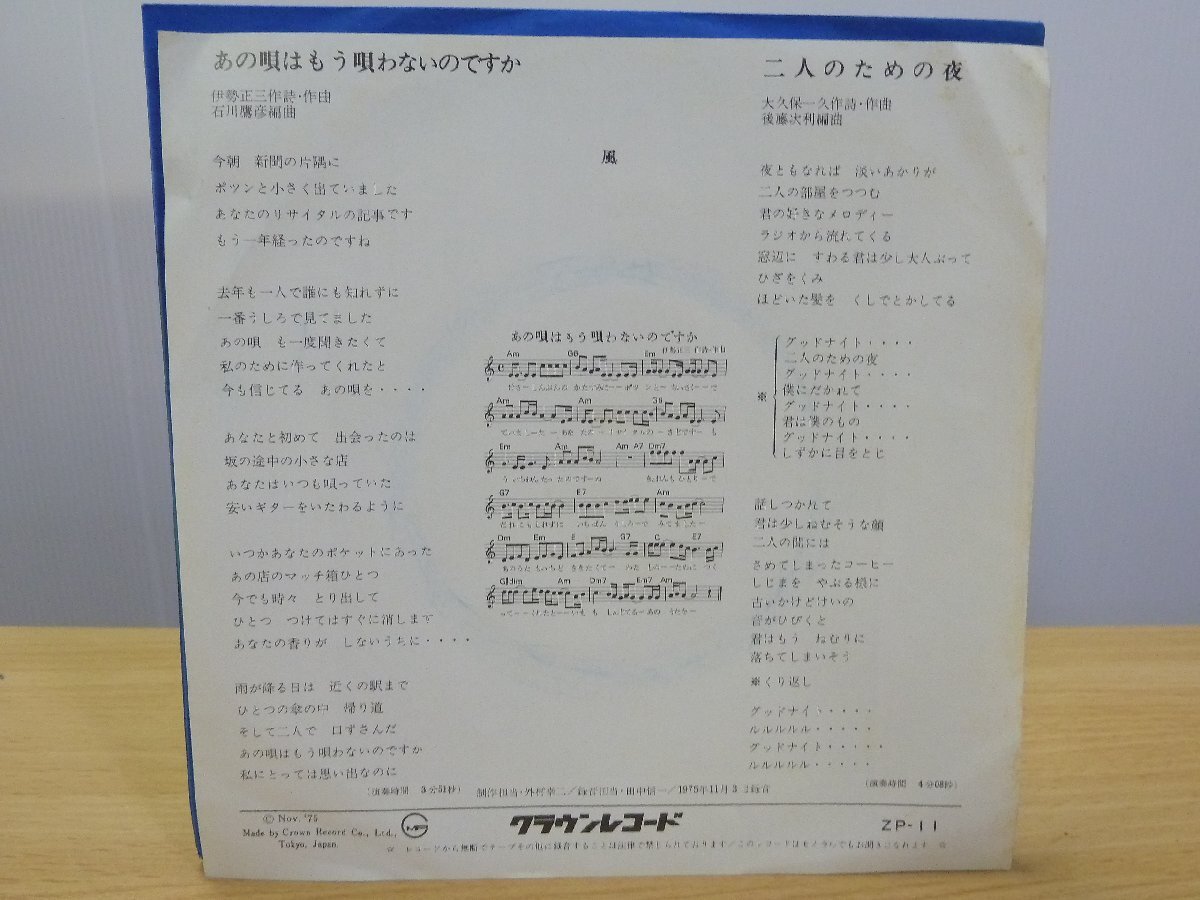 あの唄はもう唄わないのですか
伊勢正三作詩・作曲
石川鷹彦編曲
今朝 新聞の片隅に
ポツンと小さく出ていました
あなたのリサイタルの記事です
もう一年経ったのですね
去年も一人で誰にも知れずに
一番うしろで見てました
あの唄 も一度聞きたくて
私のために作ってくれたと
今も信じてる あの唄を・・・・
あなたと初めて 出会ったのは
坂の途中の小さな店
あなたはいつも唄っていた
安いギターをいたわるように
いつかあなたのポケットにあった
あの店のマッチ箱ひとつ
今でも時々 とり出して
ひとつ つけてはすぐに消します
あなたの香りが しないうちに・・・・
雨が降る日は 近くの駅まで
ひとつの傘の中 帰り道
そして二人で 口ずさんだ
あの唄はもう唄わないのですか
私にとっては思い出なのに
(演奏時間 3分51秒)
風
あの唄はもう唄わないのですか
伊勢正三作詩・作曲
Am G6 Em
Am Am G6
Em Am Am A7 Dm7
G7 E7 Am
Dm Em E G7 C E7
G♯dim Am Dm7 Em7 Am
二人のための夜
大久保一久作詩・作曲
後藤次利編曲
夜ともなれば 淡いあかりが
二人の部屋をつつむ
君の好きなメロディー
ラジオから流れてくる
窓辺に すわる君は少し大人ぶって
ひざをくみ
ほどいた髪を くしでとかしてる
※
グッドナイト・・・・
二人のための夜
グッドナイト・・・・
僕にだかれて
グッドナイト・・・・
君は僕のもの
グッドナイト・・・・
しずかに目をとじ
話しつかれて
君は少しねむそうな顔
二人の間には
さめてしまったコーヒー
しじまを やぶる様に
古いかけどけいの
音がひびくと
君はもう ねむりに
落ちてしまいそう
※くり返し
グッドナイ・・・・・
ルルルルル・・・・・
グッドナイト・・・・・
ルルルルル・・・・・
(演奏時間 4分08秒)
制作担当・外村幸二/録音担当・田中信一/1975年11月3日録音
Ⓒ Nov. '75
Made by Crown Record Co., Ltd.,
Tokyo, Japan.
クラウンレコード
ZP-11
☆ レコードから無断でテープその他に録音することは法律で禁じられております/このレコードはモノラルでもお聞きになれます ☆